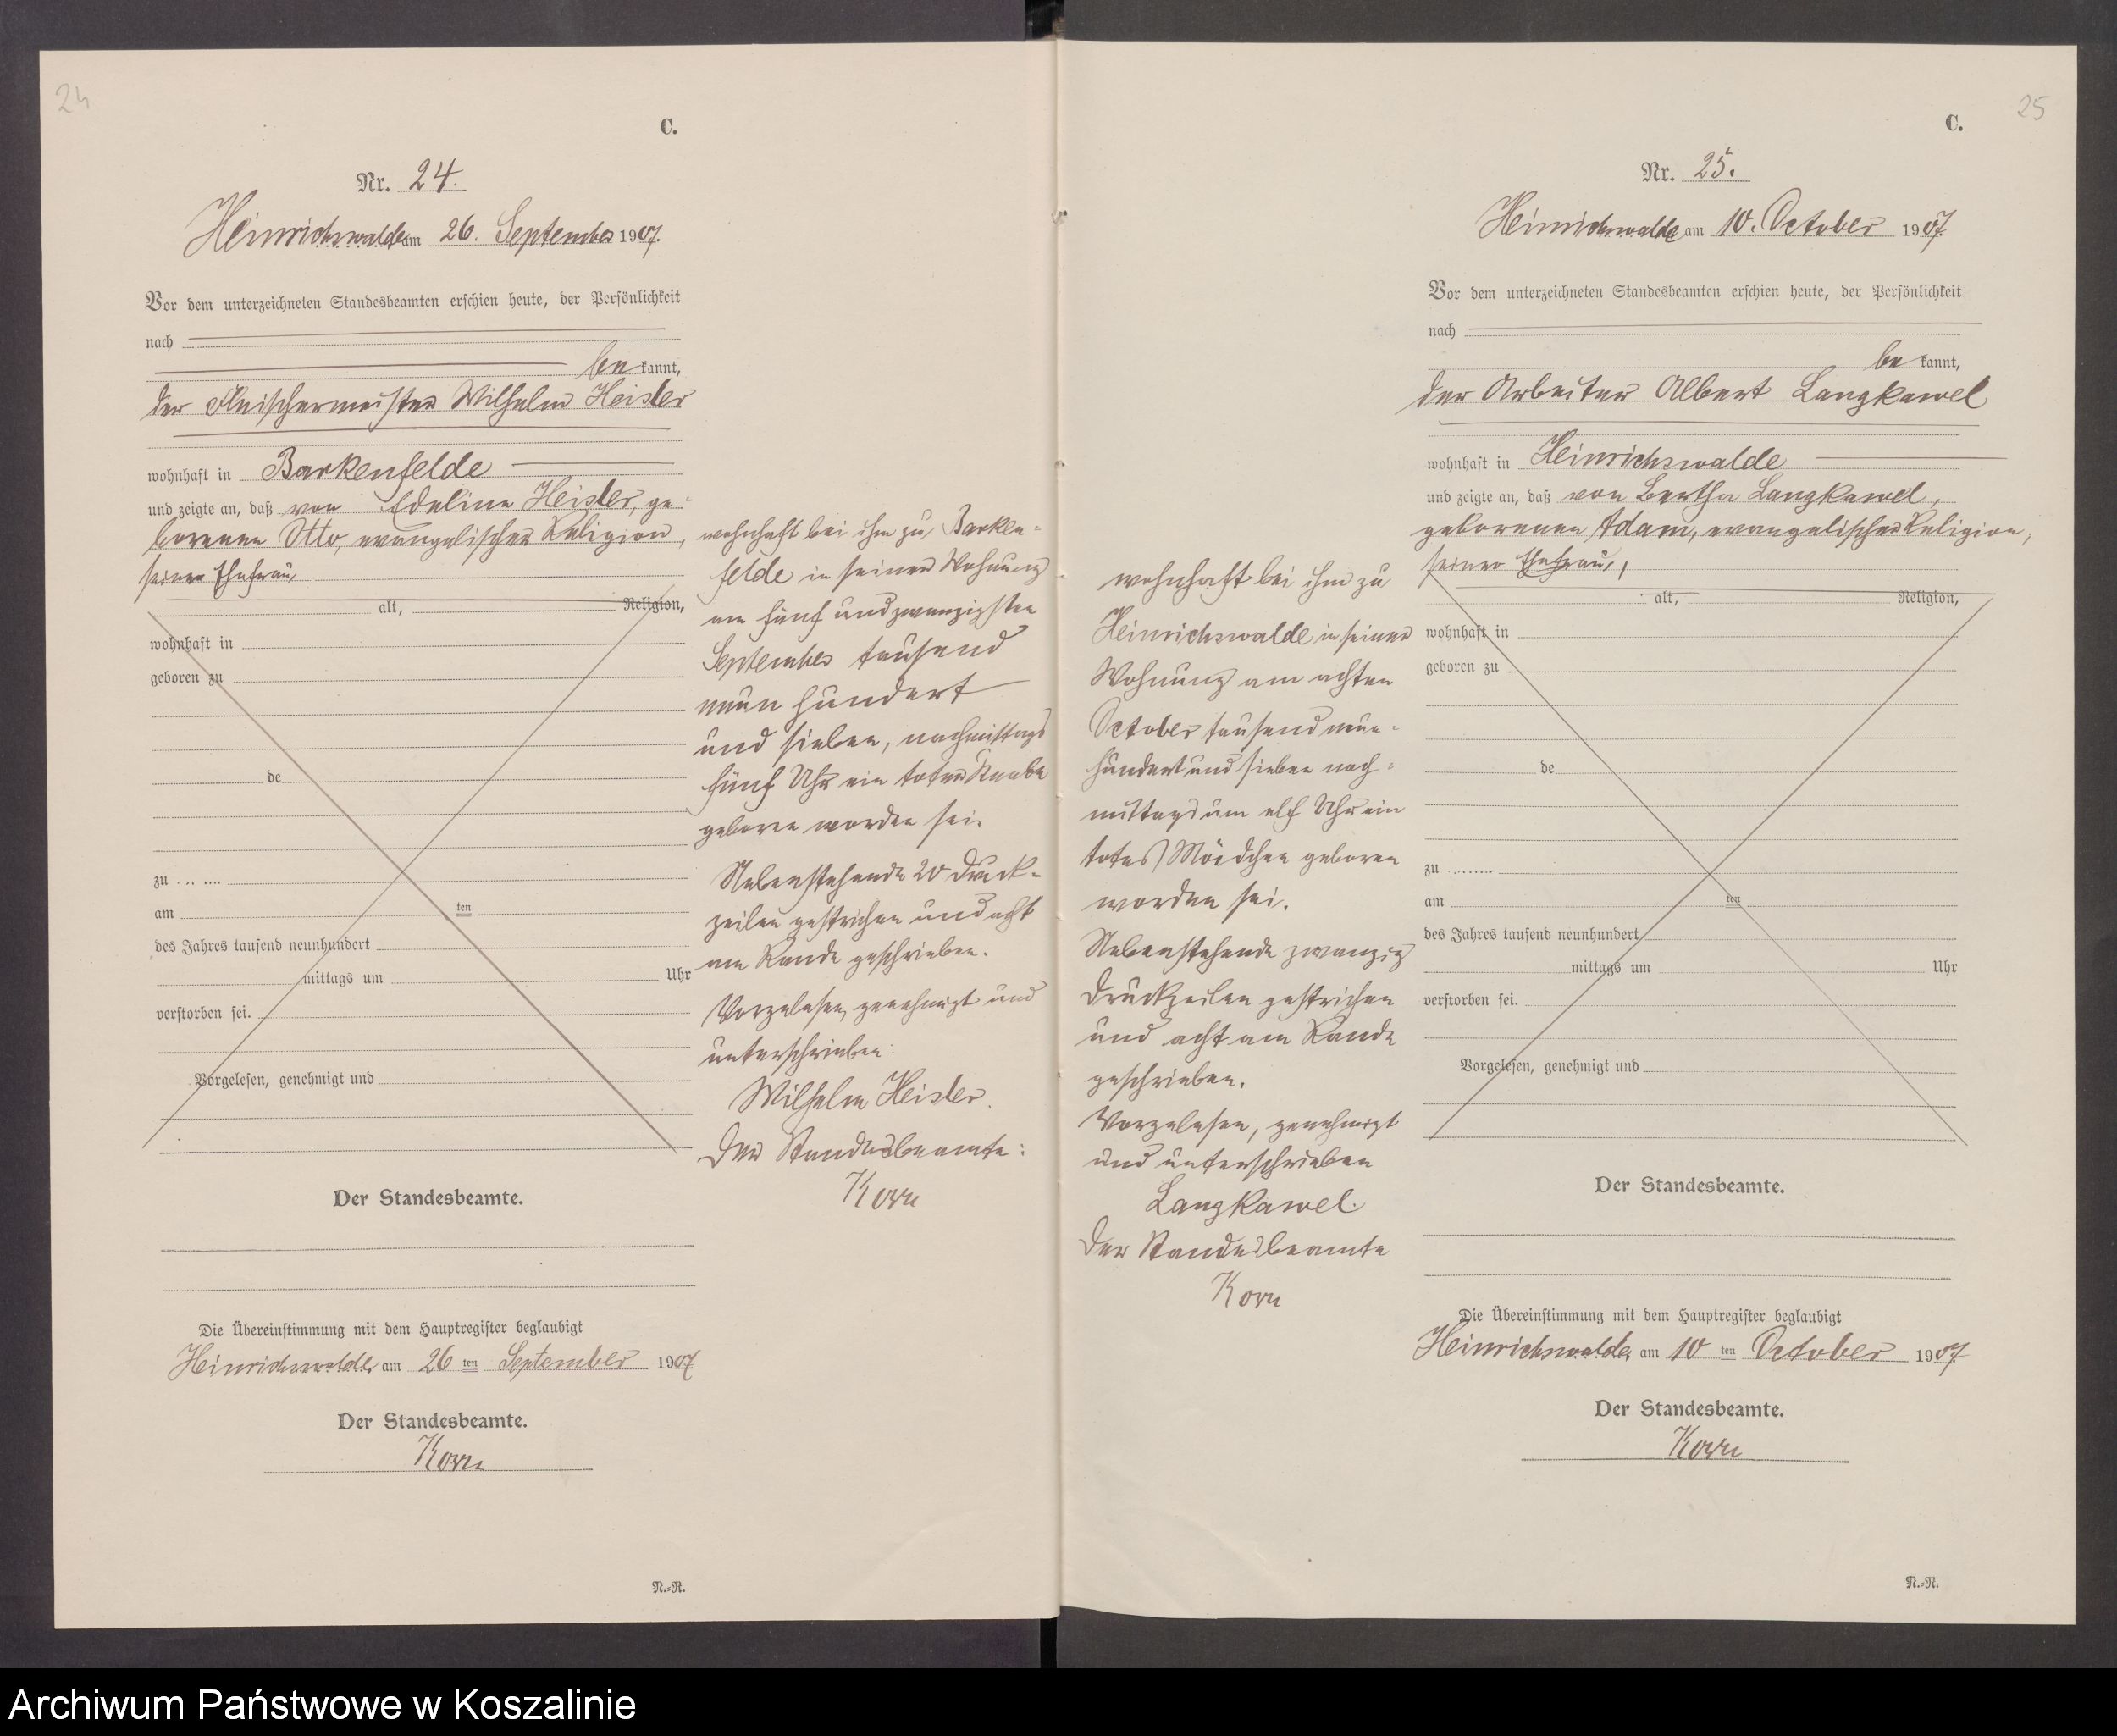 24
C.
Nr. 24.
Heinrichswalde am 26. September 1907.
Vor dem unterzeichneten Standesbeamten erschien heute, der Persönlichkeit
nach
be kannt,
der Fleischermeister Wilhelm Heisler
wohnhaft in Barkenfelde
und zeigte an, daß von Edeline Heisler, ge-
borenen Otto, evangelischer Religion,
seiner Ehefrau,
alt, Religion,
wohnhaft in
geboren zu
de
zu
am ten
des Jahres tausend neunhundert
mittags um Uhr
verstorben sei.
Vorgelesen, genehmigt und
wohnhaft bei ihm zu Barken-
felde in seiner Wohnung
am fünf und zwanzigsten
September tausend
neun hundert
und sieben, nachmittags
fünf Uhr ein toter Knabe
geboren worden sei.
Nebenstehende 20 Druck-
zeilen gestrichen und acht
am Rande geschrieben.
Vorgelesen, genehmigt und
unterschrieben:
Wilhelm Heisler.
Der Standesbeamte:
Korn
Der Standesbeamte.
Die Übereinstimmung mit dem Hauptregister beglaubigt
Heinrichswalde, am 26 ten September 1907
Der Standesbeamte.
Korn
N.-R.
25
C.
Nr. 25.
Heinrichswalde am 10. October 1907.
Vor dem unterzeichneten Standesbeamten erschien heute, der Persönlichkeit
nach
be kannt,
der Arbeiter Albert Langkawel
wohnhaft in Heinrichswalde
und zeigte an, daß von Bertha Langkawel,
geborenen Adam, evangelischer Religion,
seiner Ehefrau,
alt, Religion,
wohnhaft in
geboren zu
de
zu
am ten
des Jahres tausend neunhundert
mittags um Uhr
verstorben sei.
Vorgelesen, genehmigt und
wohnhaft bei ihm zu
Heinrichswalde in seiner
Wohnung am achten
October tausend neun-
hundert und sieben nach-
mittags um elf Uhr ein
totes Mädchen geboren
worden sei.
Nebenstehende zwanzig
Druckzeilen gestrichen
und acht am Rande
geschrieben.
Vorgelesen, genehmigt
und unterschrieben
Langkawel.
Der Standesbeamte
Korn
Der Standesbeamte.
Die Übereinstimmung mit dem Hauptregister beglaubigt
Heinrichswalde, am 10 ten October 1907.
Der Standesbeamte.
Korn
N.-R.
Archiwum Państwowe w Koszalinie